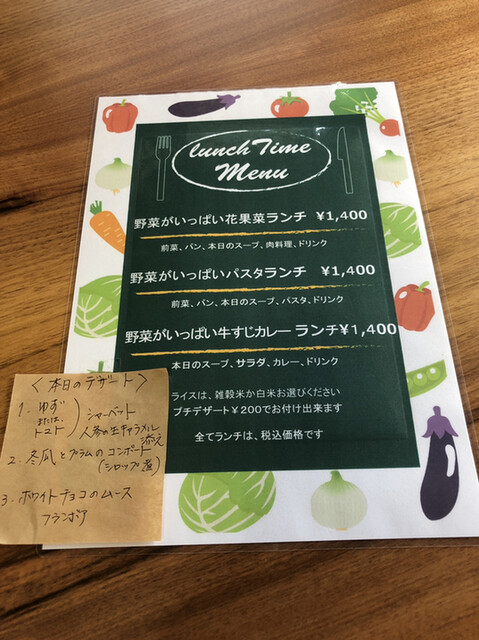 lunch Time
Menu
野菜がいっぱい花果菜ランチ ¥1,400
前菜、パン、本日のスープ、肉料理、ドリンク
野菜がいっぱいパスタランチ ¥1,400
前菜、パン、本日のスープ、パスタ、ドリンク
野菜がいっぱい牛すじカレーランチ¥1,400
本日のスープ、サラダ、カレー、ドリンク
ライスは、雑穀米か白米お選びください
プチデザート¥200でお付け出来ます
全てランチは、税込価格です
＜本日のデザート＞
1. ゆず
または
トマト
シャーベット
人参の生キャラメル
添え
2. 冬瓜とプラムのコンポート
(シロップ煮)
3. ホワイトチョコのムース
フランボア